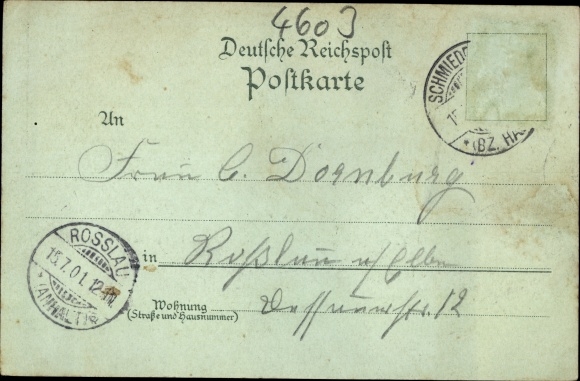 4603
Deutsche Reichspost
Postkarte
SCHMIEDE
(BZ. HA
An
Frau C. Dornburg
ROSSLAU
15.7.01. 12-1N.
(ANHALT)
in Roßlau a/Elbe
Wohnung
(Straße und Hausnummer)
Dessauerstr. 12